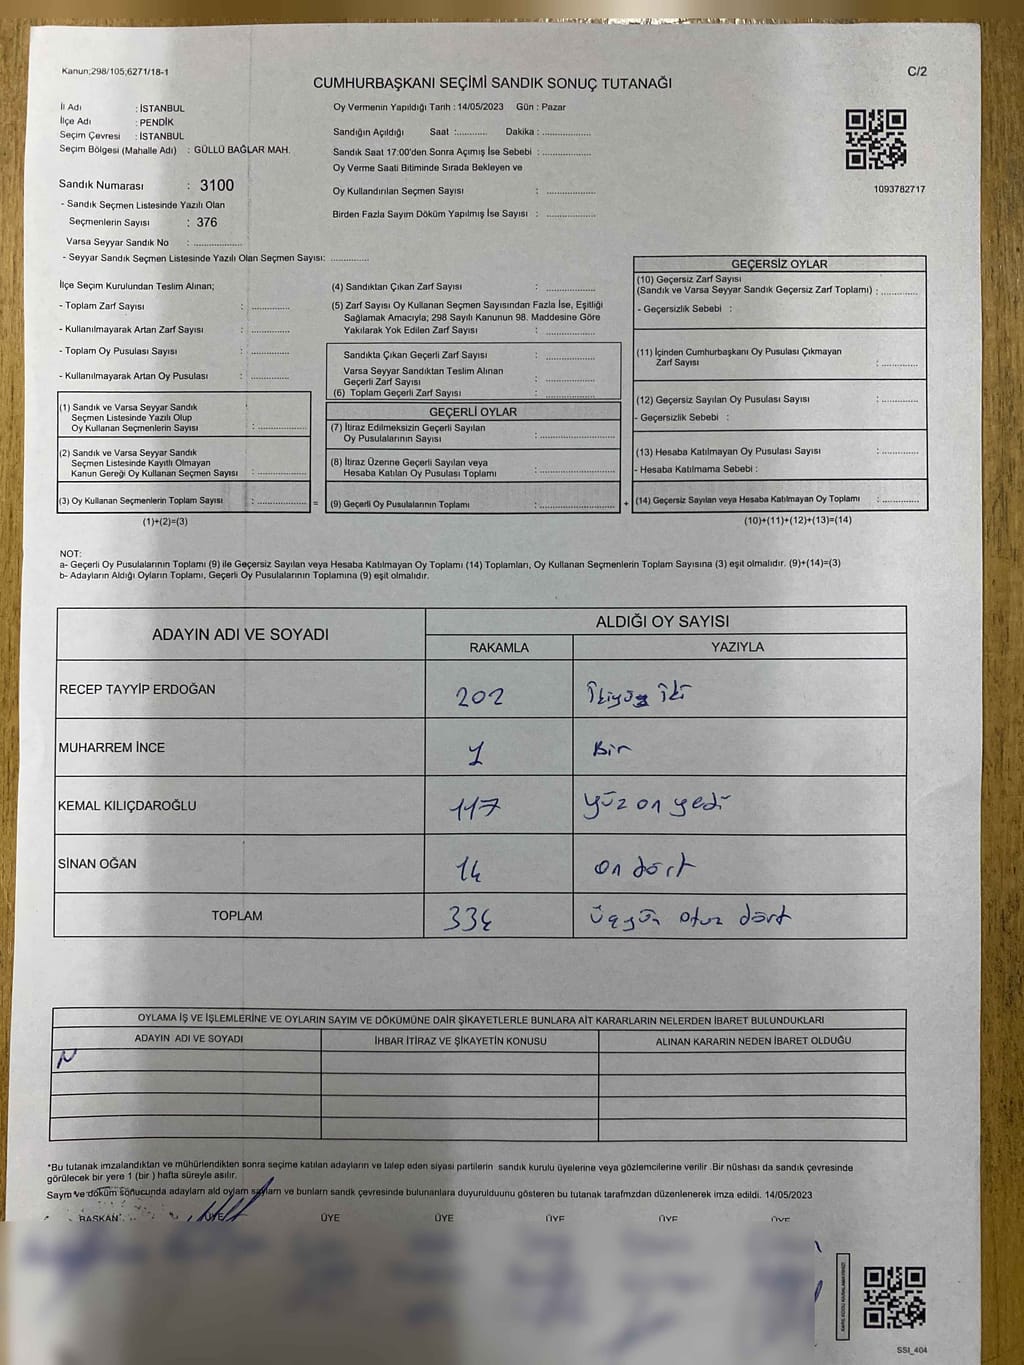 Kanun;298/105;6271/18-1
C/2
CUMHURBAŞKANI SEÇİMİ SANDIK SONUÇ TUTANAĞI
İl Adı : İSTANBUL
İlçe Adı : PENDİK
Seçim Çevresi : İSTANBUL
Seçim Bölgesi (Mahalle Adı) : GÜLLÜ BAĞLAR MAH.
Sandık Numarası : 3100
- Sandık Seçmen Listesinde Yazılı Olan
Seçmenlerin Sayısı : 376
Varsa Seyyar Sandık No : ................
- Seyyar Sandık Seçmen Listesinde Yazılı Olan Seçmen Sayısı: .............
Oy Vermenin Yapıldığı Tarih : 14/05/2023 Gün : Pazar
Sandığın Açıldığı Saat :........... Dakika : ................
Sandık Saat 17:00'den Sonra Açımış İse Sebebi : ................
Oy Verme Saati Bitiminde Sırada Bekleyen ve
Oy Kullandırılan Seçmen Sayısı : ................
Birden Fazla Sayım Döküm Yapılmış İse Sayısı : ................
1093782717
İlçe Seçim Kurulundan Teslim Alınan;
- Toplam Zarf Sayısı : .............
- Kullanılmayarak Artan Zarf Sayısı : .............
- Toplam Oy Pusulası Sayısı : .............
- Kullanılmayarak Artan Oy Pusulası : .............
(1) Sandık ve Varsa Seyyar Sandık
Seçmen Listesinde Yazılı Olup
Oy Kullanan Seçmenlerin Sayısı : ................
(2) Sandık ve Varsa Seyyar Sandık
Seçmen Listesinde Kayıtlı Olmayan
Kanun Gereği Oy Kullanan Seçmen Sayısı : ................
(3) Oy Kullanan Seçmenlerin Toplam Sayısı : ................ =
(1)+(2)=(3)
(4) Sandıktan Çıkan Zarf Sayısı : ................
(5) Zarf Sayısı Oy Kullanan Seçmen Sayısından Fazla İse, Eşitliği
Sağlamak Amacıyla; 298 Sayılı Kanunun 98. Maddesine Göre
Yakılarak Yok Edilen Zarf Sayısı : ................
Sandıkta Çıkan Geçerli Zarf Sayısı : ................
Varsa Seyyar Sandıktan Teslim Alınan
Geçerli Zarf Sayısı : ................
(6) Toplam Geçerli Zarf Sayısı : ................
GEÇERLİ OYLAR
(7) İtiraz Edilmeksizin Geçerli Sayılan
Oy Pusulalarının Sayısı : ................
(8) İtiraz Üzerine Geçerli Sayılan veya
Hesaba Katılan Oy Pusulası Toplamı : ................
(9) Geçerli Oy Pusulalarının Toplamı : ................ +
GEÇERSİZ OYLAR
(10) Geçersiz Zarf Sayısı
(Sandık ve Varsa Seyyar Sandık Geçersiz Zarf Toplamı) : .............
- Geçersizlik Sebebi :
(11) İçinden Cumhurbaşkanı Oy Pusulası Çıkmayan
Zarf Sayısı : .............
(12) Geçersiz Sayılan Oy Pusulası Sayısı : .............
- Geçersizlik Sebebi :
(13) Hesaba Katılmayan Oy Pusulası Sayısı : .............
- Hesaba Katılmama Sebebi :
(14) Geçersiz Sayılan veya Hesaba Katılmayan Oy Toplamı : .............
(10)+(11)+(12)+(13)=(14)
NOT:
a- Geçerli Oy Pusulalarının Toplamı (9) ile Geçersiz Sayılan veya Hesaba Katılmayan Oy Toplamı (14) Toplamları, Oy Kullanan Seçmenlerin Toplam Sayısına (3) eşit olmalıdır. (9)+(14)=(3)
b- Adayların Aldığı Oyların Toplamı, Geçerli Oy Pusulalarının Toplamına (9) eşit olmalıdır.
ADAYIN ADI VE SOYADI
ALDIĞI OY SAYISI
RAKAMLA YAZIYLA
RECEP TAYYİP ERDOĞAN 202 İkiyüz iki
MUHARREM İNCE 1 Bir
KEMAL KILIÇDAROĞLU 117 yüz on yedi
SİNAN OĞAN 14 on dört
TOPLAM 334 üçyüz otuz dört
OYLAMA İŞ VE İŞLEMLERİNE VE OYLARIN SAYIM VE DÖKÜMÜNE DAİR ŞİKAYETLERLE BUNLARA AİT KARARLARIN NELERDEN İBARET BULUNDUKLARI
ADAYIN ADI VE SOYADI İHBAR İTİRAZ VE ŞİKAYETİN KONUSU ALINAN KARARIN NEDEN İBARET OLDUĞU
*Bu tutanak imzalandıktan ve mühürlendikten sonra seçime katılan adayların ve talep eden siyasi partilerin sandık kurulu üyelerine veya gözlemcilerine verilir .Bir nüshası da sandık çevresinde
görülecek bir yere 1 (bir ) hafta süreyle asılır.
Sayım ve döküm sonucunda adaylarn ald oylarn saylarn ve bunlarn sandk çevresinde bulunanlara duyurulduunu gösteren bu tutanak tarafmzdan düzenlenerek imza edildi. 14/05/2023
BAŞKAN ÜYE ÜYE ÜYE ÜYE ÜYE ÜYE
SSI_404